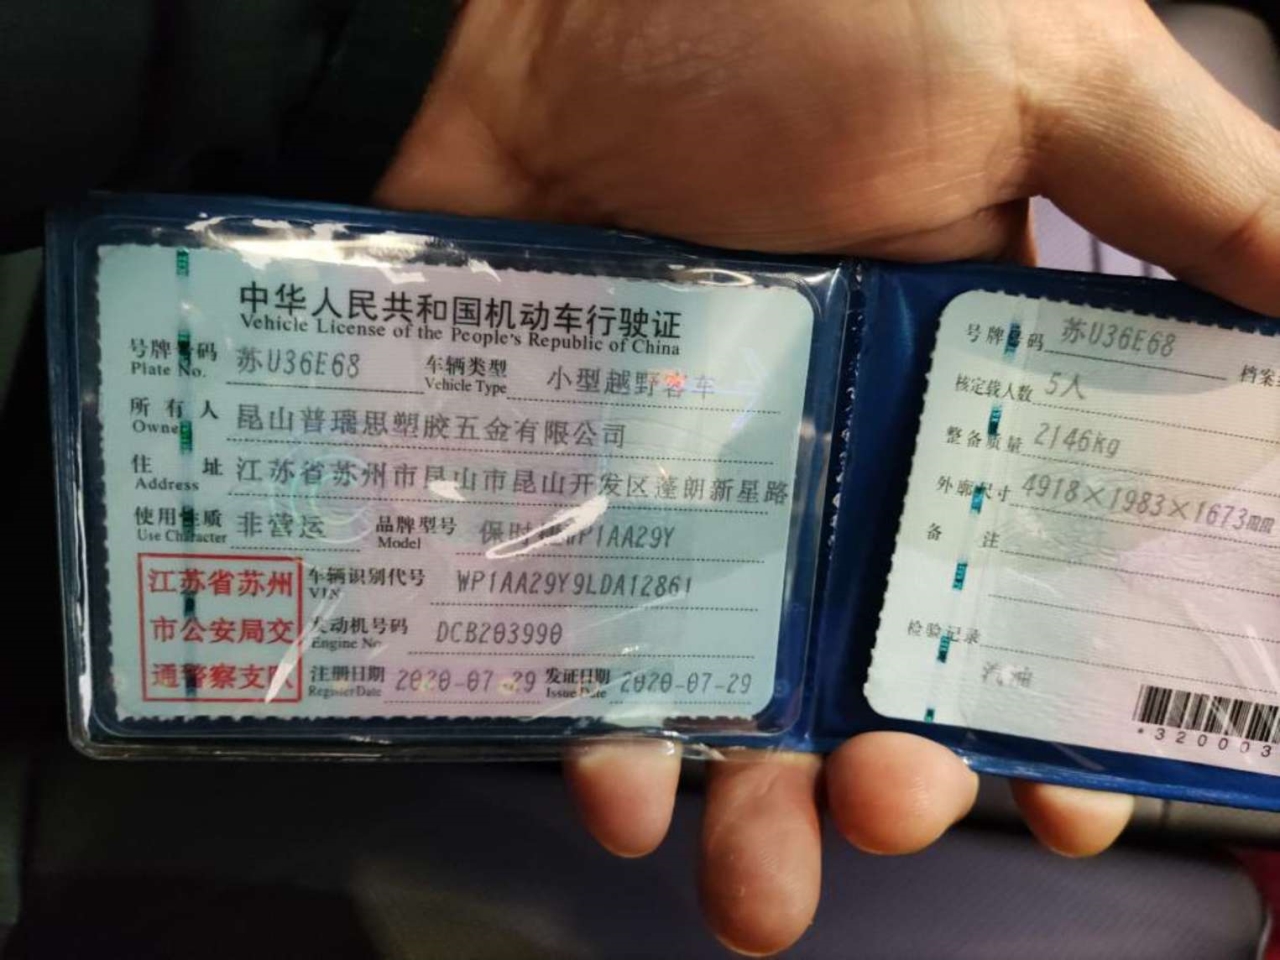 中华人民共和国机动车行驶证
Vehicle License of the People's Republic of China
号牌号码 苏U36E68 车辆类型 小型越野客车
Plate No. Vehicle Type
所有人 昆山普瑞思塑胶五金有限公司
Owner
住址 江苏省苏州市昆山市昆山开发区蓬朗新星路
Address
使用性质 非营运 品牌型号 保时捷WP1AA29Y
Use Character Model
江苏省苏州 车辆识别代号 WP1AA29Y9LDA12861
VIN
市公安局交 发动机号码 DCB203990
Engine No.
通警察支队 注册日期 2020-07-29 发证日期 2020-07-29
Register Date Issue Date
号牌号码 苏U36E68 档案
核定载人数 5人
整备质量 2146kg
外廓尺寸 4918×1983×1673mm
备注
检验记录
汽油
*320003